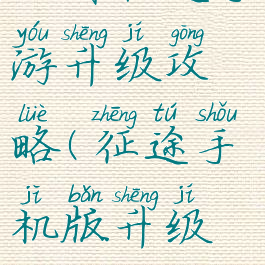 yóu shēng jí gōng
游升级攻
lüè zhēng tú shǒu
略(征途手
jī bǎn shēng jí
机版升级